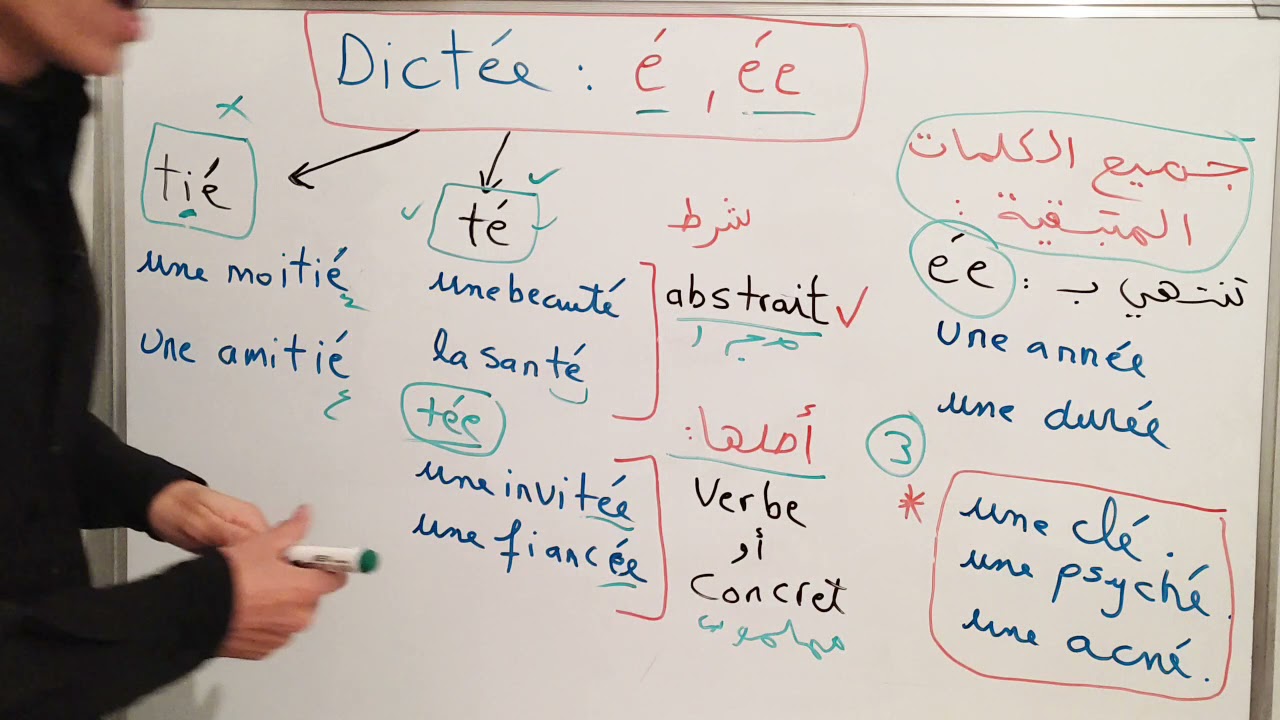 Dictée : é , ée
tié
une moitié
une amitié
té
une beauté
la santé
شرط
abstrait
مجرد
tée
une invitée
une fiancée
أصلها:
Verbe
أو
Concret
ملموس
جميع الكلمات
المتبقية :
تنتهي ب : ée
une année
une durée
3
* une clé.
une psyché.
une acné.